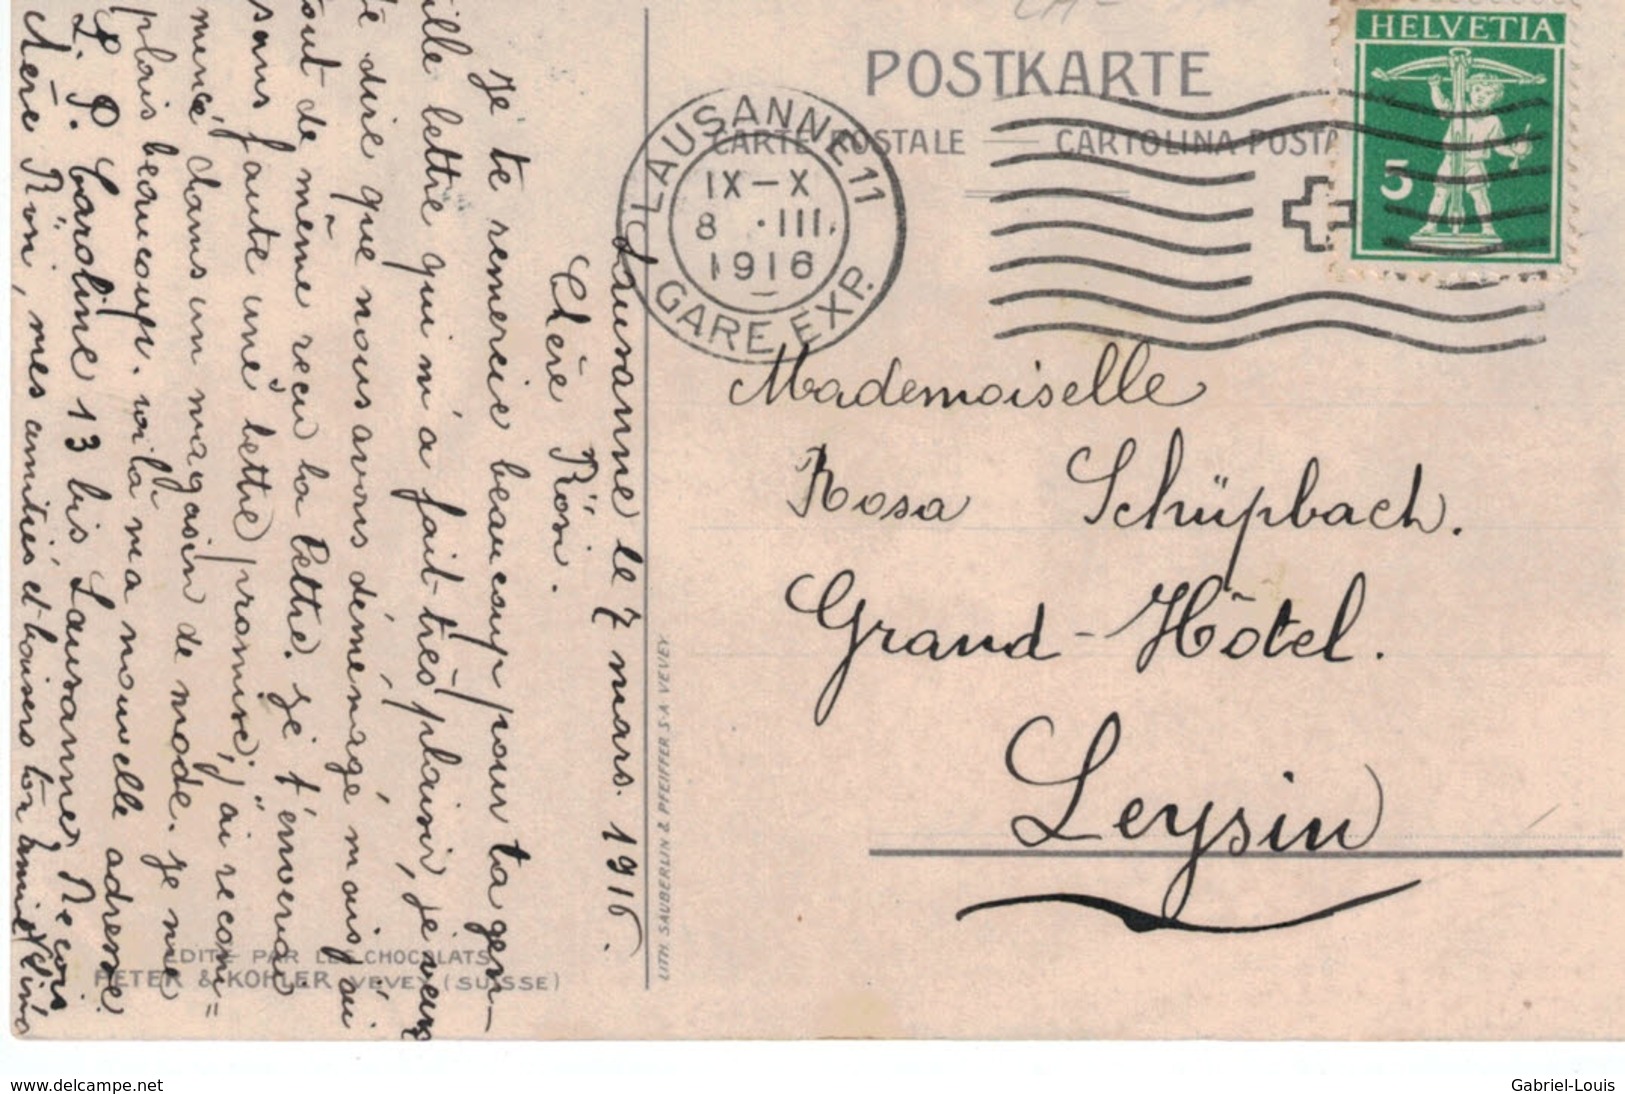 POSTKARTE
CARTE POSTALE — CARTOLINA POSTA
HELVETIA
5
LAUSANNE 11
IX–X
8 .III.
1916
GARE EXP.
Mademoiselle
Rosa Schüpbach.
Grand-Hôtel.
Leysin
Lausanne le 7 mars. 1916.
Chère Rösi.
Je te remercie beaucoup pour ta gen-
ille lettre qui m'a fait très plaisir, je veux
te dire que nous avons déménagé mais j'ai
tout de même reçu la lettre. je t'enverai
sans faute une lettre promise, j'ai recom=
mencé dans un magasin de mode. je me
plais beaucoup. voilà ma nouvelle adresse
L. P. Caroline 13 bis Lausanne. Reçois
chère Rösi, mes amitiés et baisers ton amie
LITH. SAUBERLIN & PFEIFFER S.A. VEVEY
EDITÉ PAR LES CHOCOLATS
PETER & KOHLER VEVEY (SUISSE)
www.delcampe.net
Gabriel-Louis